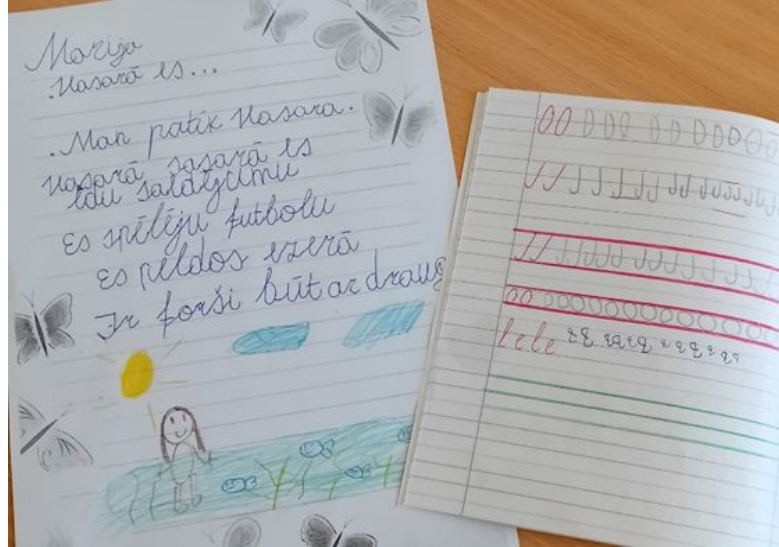 Marija
Vasarā es...
.Man patīk vasara.
vasarā sasarā es
ēdu saldējumu
Es spēlēju futbolu
Es peldos ezerā
Ir forši būt ar draug